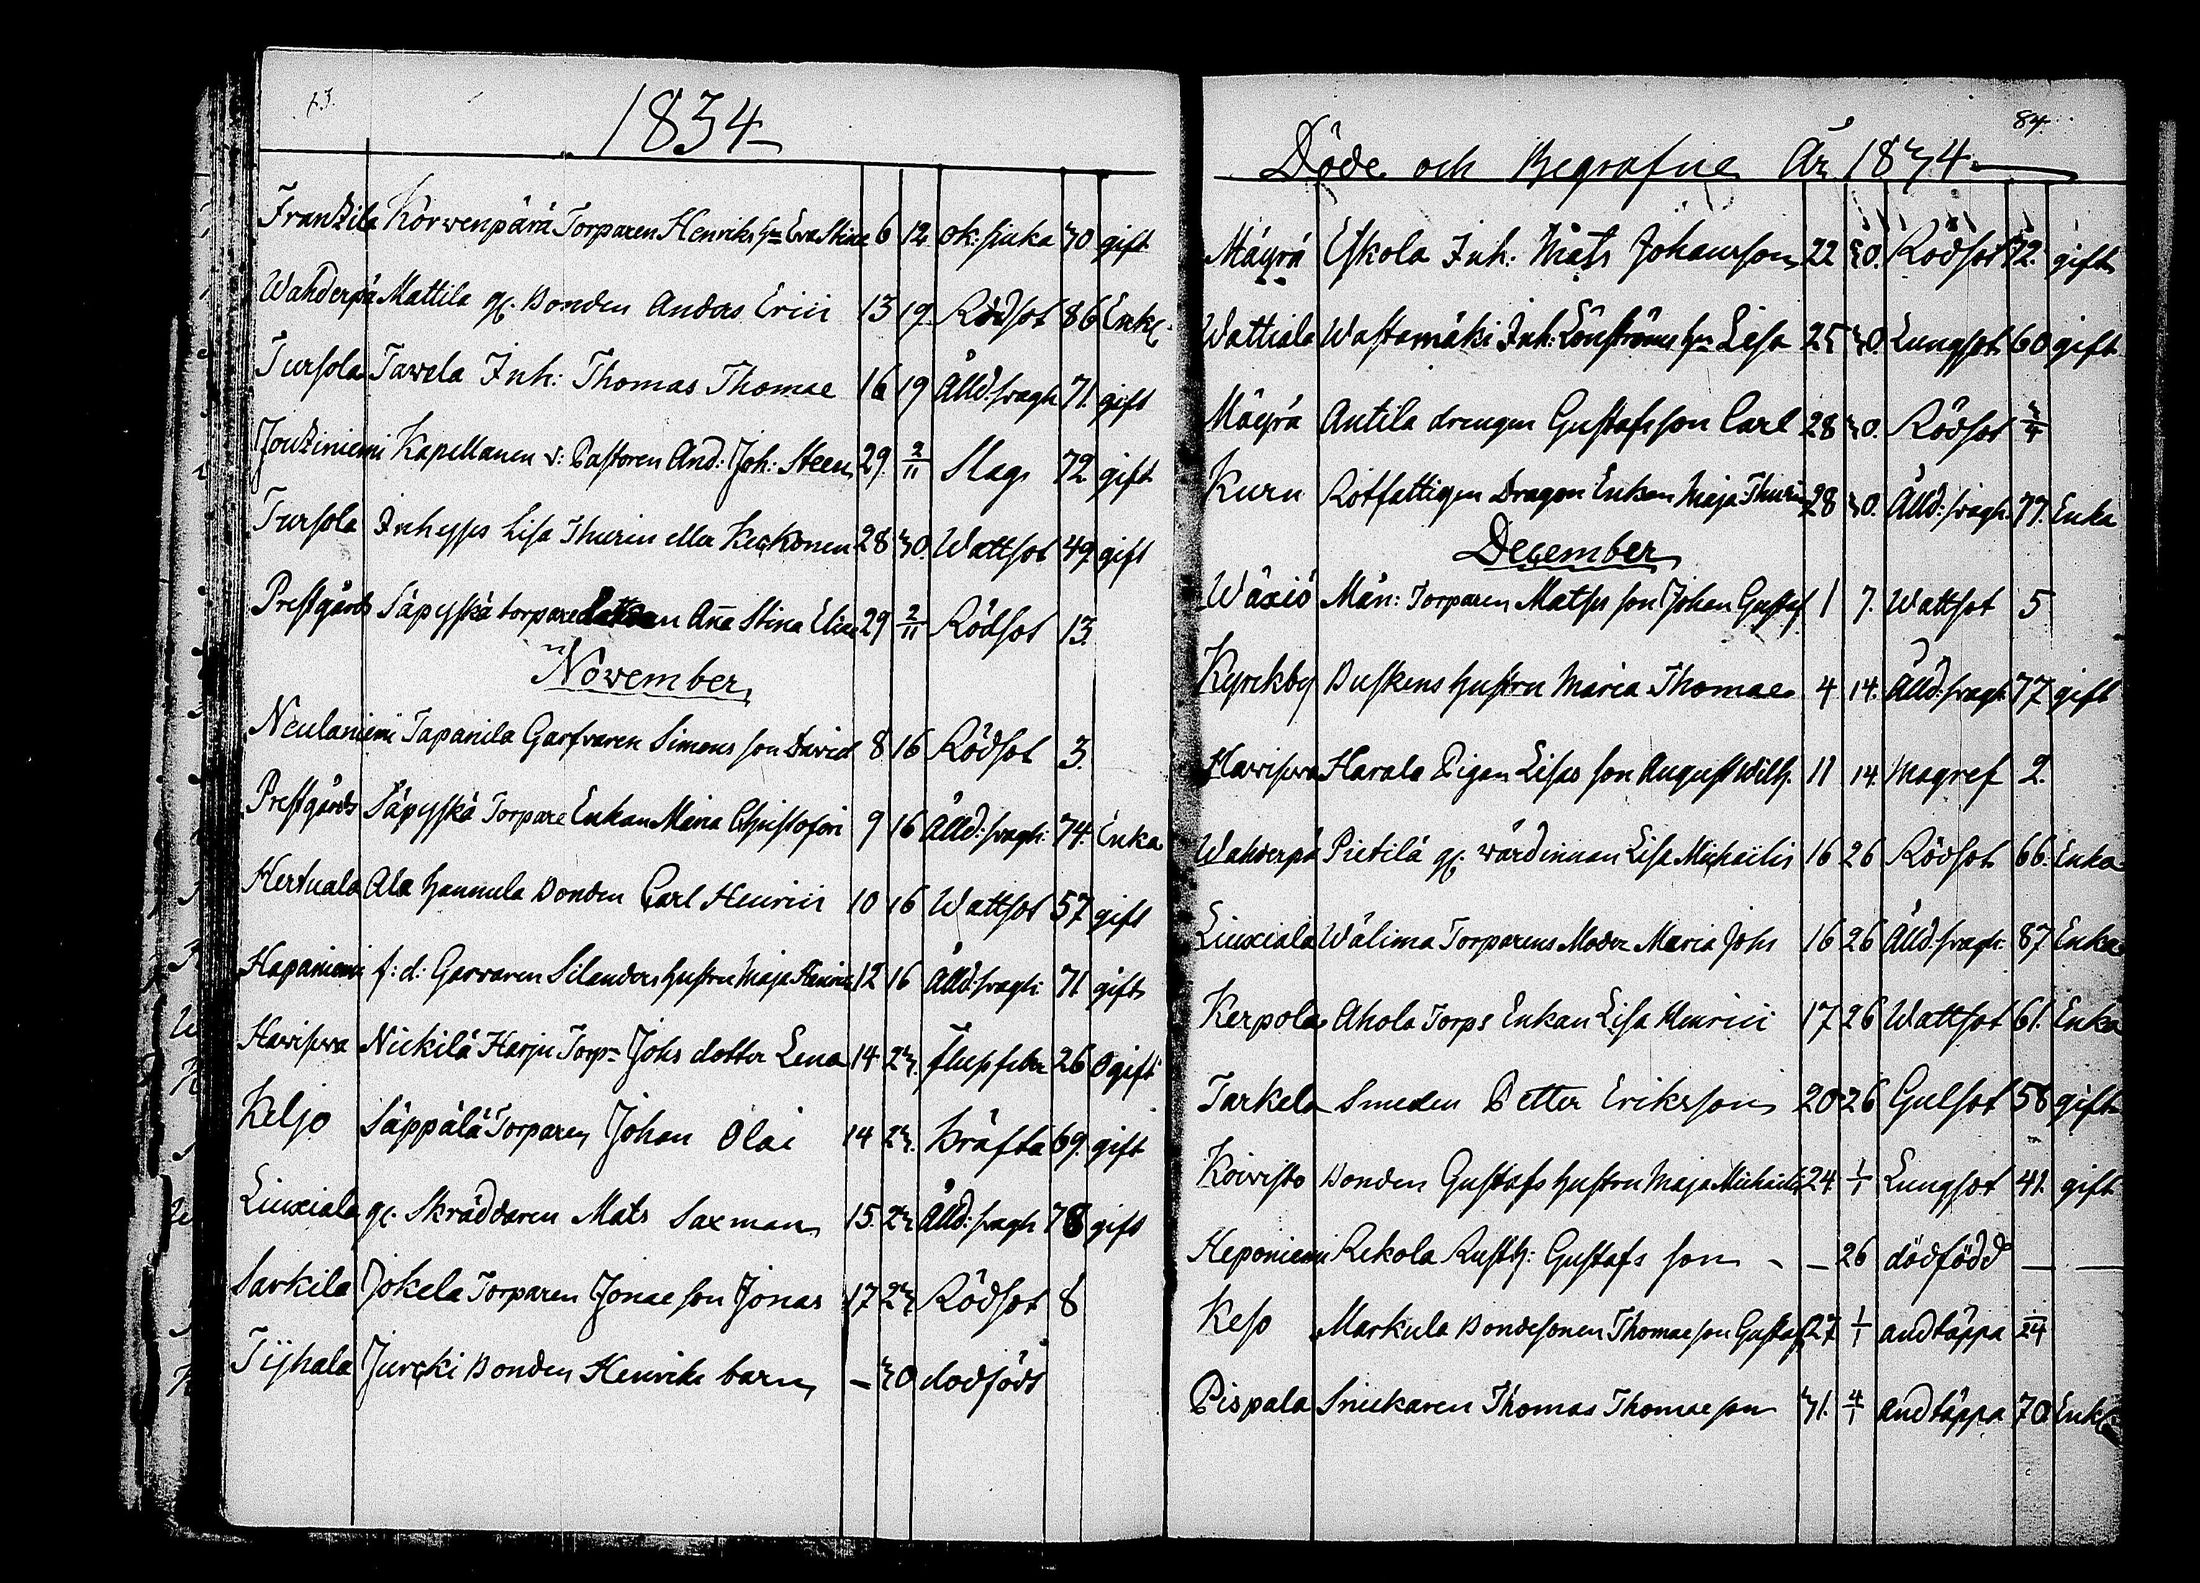 1834
Frantzila Körwenpärä Torparen Henriks h:u Eva Stina 6 12 ok: sjuka 30 gift
Wahderpä Mattila gl. Bonden Anders Erici 13 19 Rödsot 86 Enkl.
Tursola Tawela Inh: Thomas Thomae 16 19 Ålld: svagh 71. gift
Joutziniemi Kapellanen v: Pastoren And: Joh: Steen 29. 2/11 Slag 72 gift
Tursola Inhyses Lisa Thurin eller Keckonen 28 30. Wattsot 49 gift
Prestgårds Säpyskä torpare dottren Aña Stina Eliae 29 2/11 Rödsot 13.
November
Neulaniemi Tapanila Garfvaren Simons son David 8 16 Rödsot 3.
Prestgårds Säpyskä Torpare Enkan Maria Christofori 9 16 Ålld: svagh: 74. Enka
Hertuala Ala Hannula Bonden Carl Henrici 10 16 Wattsot 57 gift
Hapaniemi f: d: Garvaren Silanders hustru Maja Henrici 12 16 Ålld: svagh: 71 gift
Hawisewa Nickilä Harju Torp:n Johs dotter Lena 14 23. 26 Ogift
Keljo Säppälä Torparen Johan Olai 14 23. Kräfta 69. gift
Liuxiala gl. Skräddaren Mats Saxman 15. 23 Ålld: svagh 78 gift
Sarkila Jokela Torparen Jonae son Jonas 17 23 Rödsot 8
Tiihala Jurcki Bonden Henriks barn – 30 dodfödt
84.
Döde och Begrafne År 1834
Mäyrä Eskola Inh: Mats Johansson 22 30. Rödsot 72. gift
Wattiala Wastamäki Inh: Lönströms h:u Lisa 25 30. Lungsot 60 gift
Mäyrä Antila drengen Gustafs son Carl 28 30. Rödsot 3/4
Kuru Rotfattigen Dragon Enkan Maja Thurin 28 30. Ålld: svagh. 77. Enka
December
Wäxiö Män: Torparen Matses son Johan Gustaf 1 7. Wattsot 5
Kyrckby Buskens hustru Maria Thomae 4 14. Ålld: svagh 77 gift
Hawisewa Harala Pigan Lisas son August Wilh. 11 14. Magref 2.
Wahderpä Pietilä gl. wärdinnan Lisa Michailis 16 26 Rödsot 66. Enka
Liuxiala Wälima Torparens Moder Maria Johs 16 26 Ålld: svagh: 87 Enka
Kerpola Ahola Torps Enkan Lisa Henrici 17 26 Wattsot 61. Enka
Tarkela Smeden Petter Eriksson 20 26 Gulsot 58 gift
Koivisto Bonden Gustafs hustru Maja Michailis 24. 1/1 Lungsot 41. gift
Heponiemi Rekola Rusth: Gustafs son – – 26 dödfödd – –
Keso Markula Bondesonen Thomae son Gustaf 27 1/1 andtäppa 24
Pispala Snickaren Thomas Thomae son 31. 4/1 andtäppa 70 Enkl.